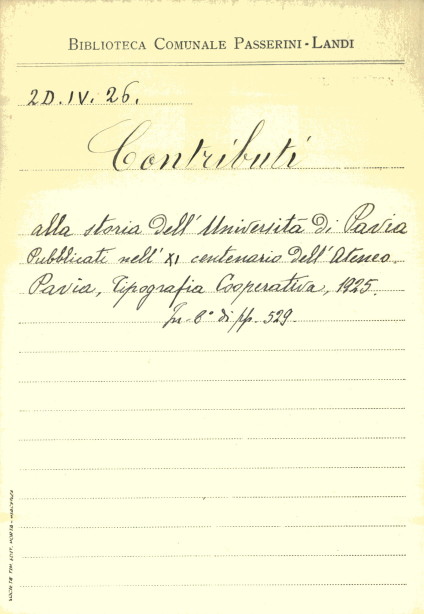 BIBLIOTECA COMUNALE PASSERINI-LANDI
2D.IV.26.
Contributi
alla storia dell'Università di Pavia
Pubblicati nell'XI centenario dell'Ateneo.
Pavia, Tipografia Cooperativa, 1925.
In-8° di pp. 529.